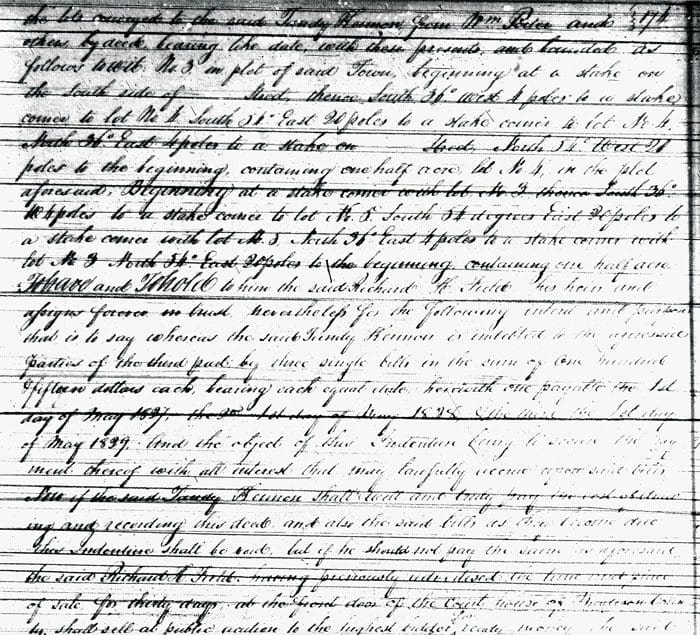 the lots conveyed to the said Tandy Kennon, from Wm and 174
others, by deed, bearing like date, with these presents, and bounded as
follows to wit. No 3. in plot of said Town, beginning at a stake on
the South side of Street, thence South 36° West 4 poles to a stake
corner to lot No 4. South 54° East 20 poles to a stake corner to lot No 4.
North 36° East 4 poles to a stake on Street, North 54° West 20
poles to the beginning, containing one half acre, lot No 4, in the plot
aforesaid. Beginning at a stake corner with lot No 3. thence South 36°
4 poles to a stake corner to lot No. 5. South 54 degrees East 20 poles to
a stake corner with lot No. 5. North 36° East 4 poles to a stake corner with
lot No 3 North 54° East 20 poles to the beginning, containing one half acre
To have and To hold to him the said Richard H. Field his heirs and
assigns forever in trust, nevertheless for the following intent and purpose
that is to say whereas the said Tandy Kennon is indebted to the
parties of the third part by three single bills in the sum of One hundred
& fifteen dollars each, bearing each equal date, herewith one payable the 1st
day of May 1837. the 1st day of May 1828 & the the 1st day
of May 1839. And the object of this Indenture being to secure the pay
ment thereof with all interest that may lawfully accrue upon said bills
Now if the said Tandy Kennon shall well and truly pay the cost of
ing and recording this deed and also the said bills as they become due
this Indenture shall be void, but if he should not pay the same as aforesaid
the said Richard H. Field. having previously advertised the time and place
of sale for thirty days at the front door of the Court house of Madison
ty, shall sell at public auction to the highest bidder, ready money the said